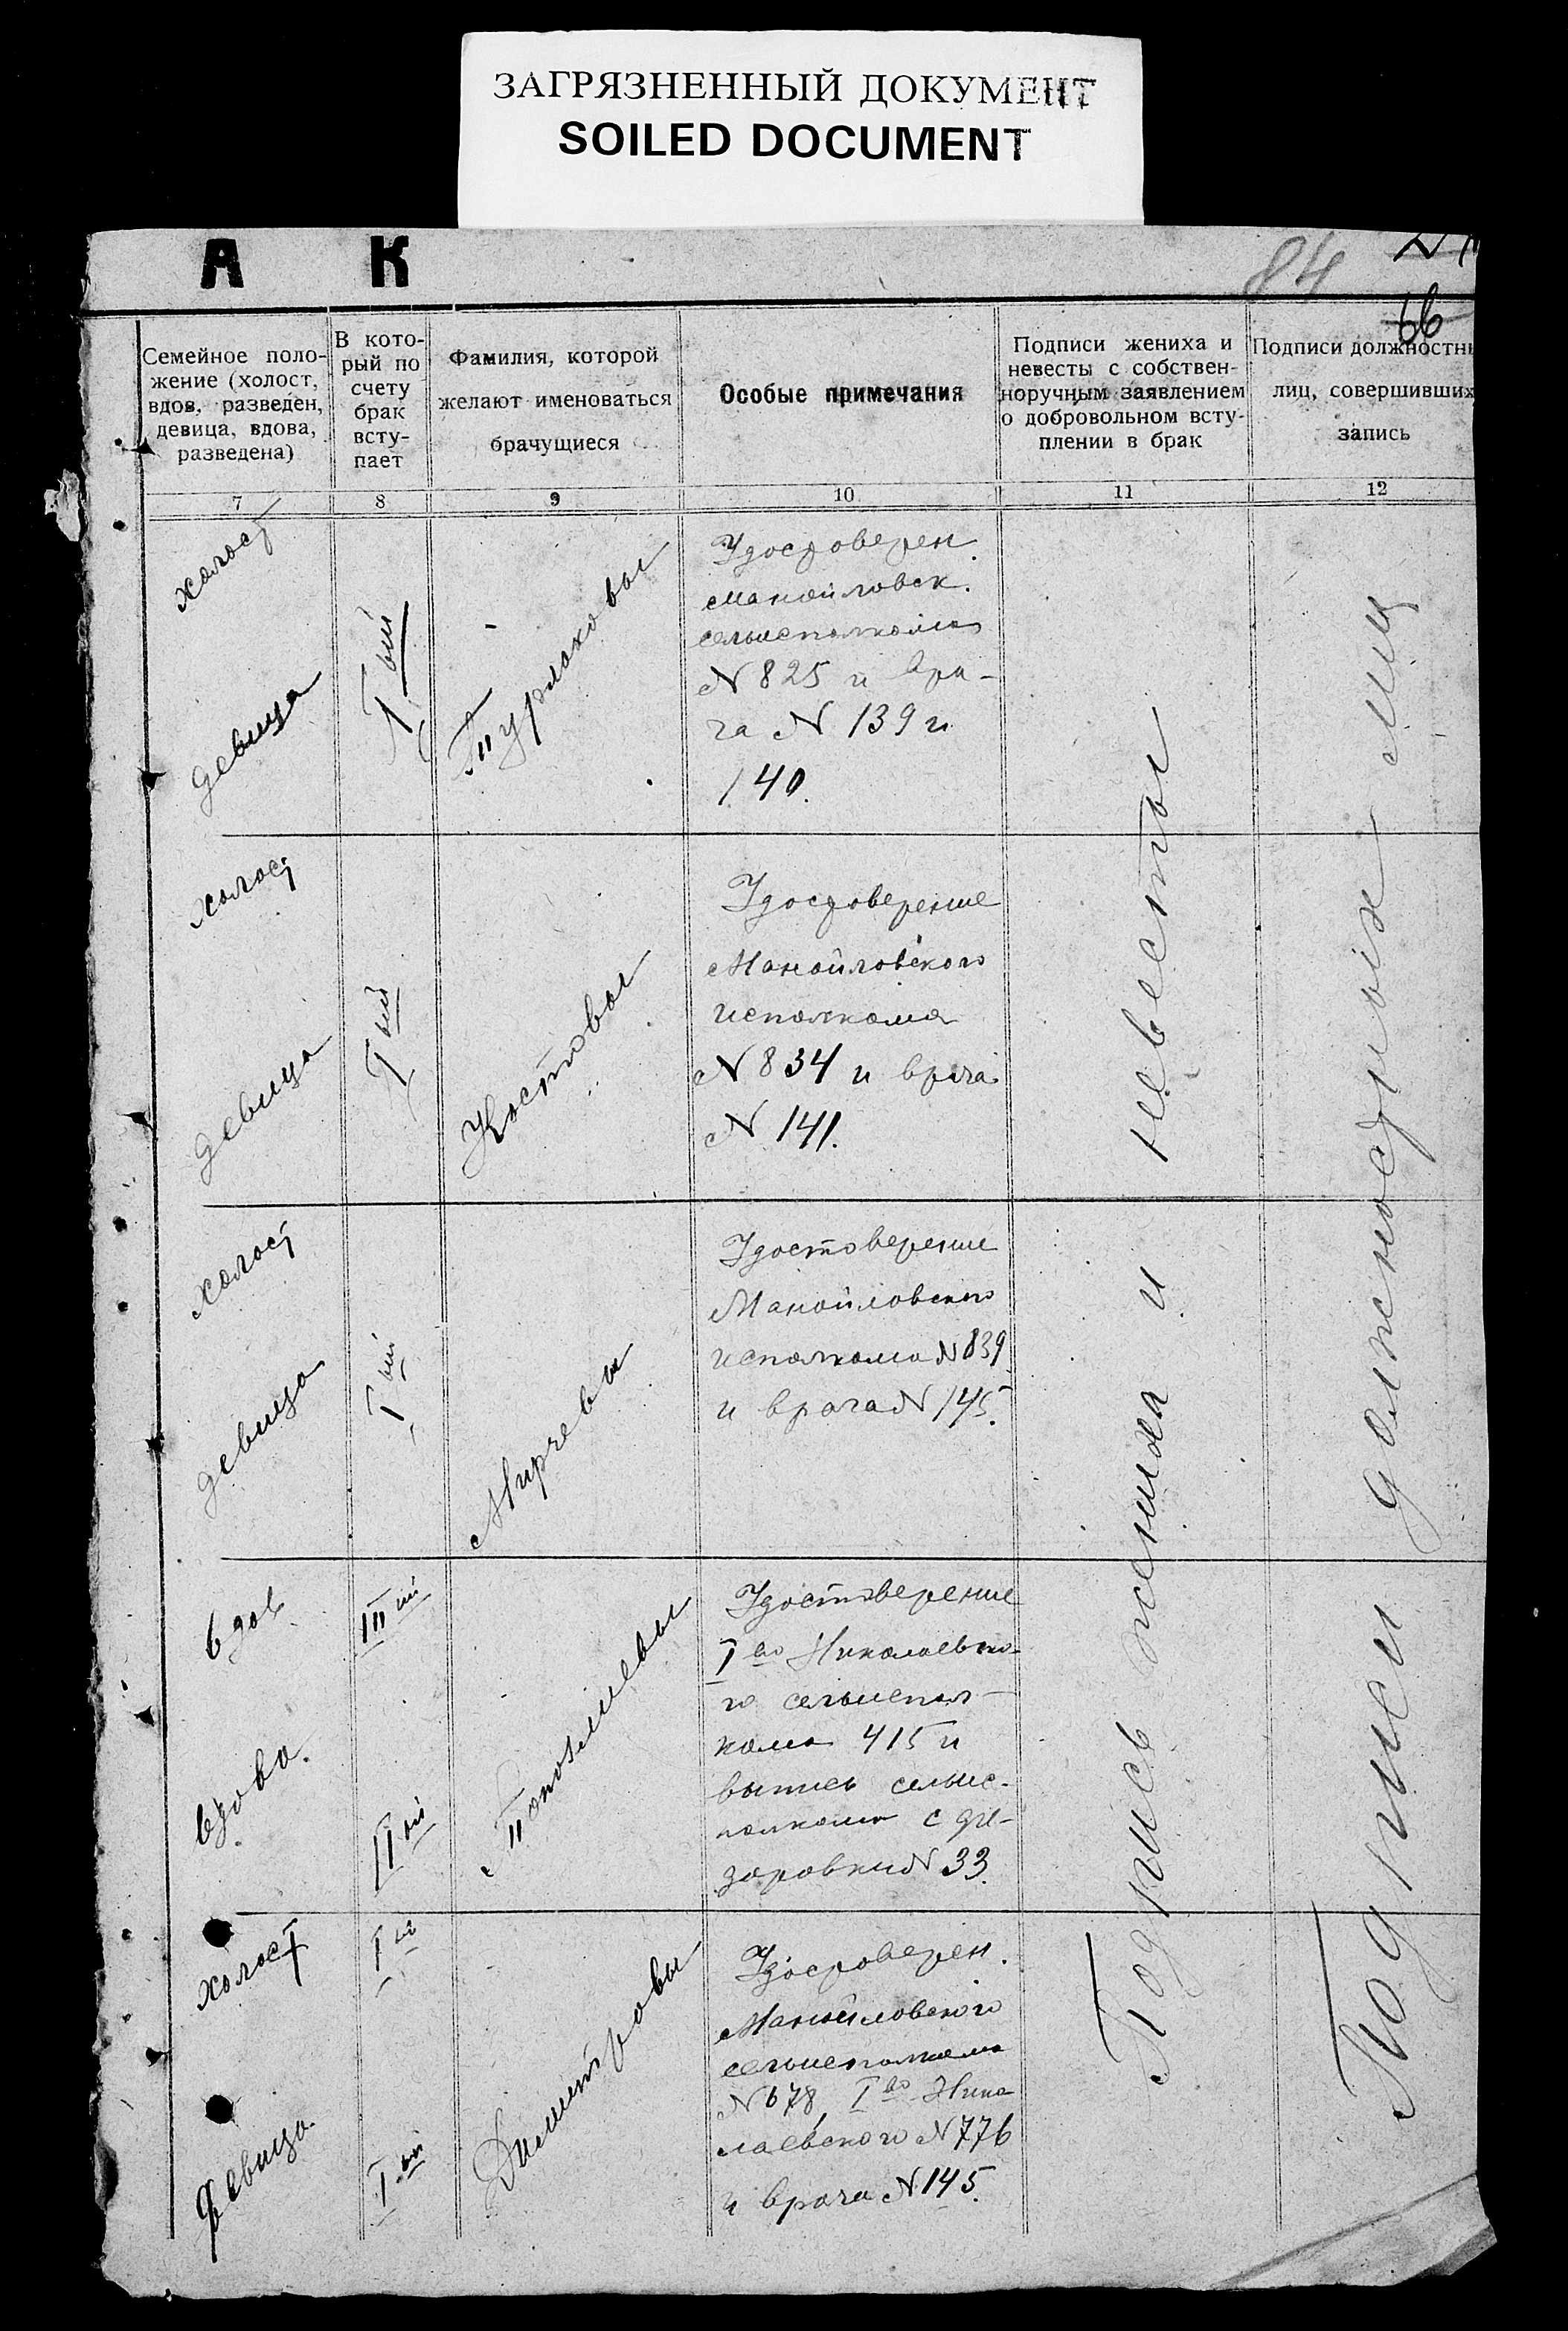 ЗАГРЯЗНЕННЫЙ ДОКУМЕНТ
SOILED DOCUMENT
А К
84
66
Семейное поло-
жение (холост,
вдов, разведен,
девица, вдова,
разведена)
В кото-
рый по
счету
брак
всту-
пает
Фамилия, которой
желают именоваться
брачущиеся
Особые примечания
Подписи жениха и
невесты с собствен-
норучным заявлением
о добровольном всту-
плении в брак
Подписи должностны
лиц, совершивших
запись
7 8 9 10 11 12
холост
девица
I ый
Турлаковы
Удостоверен.
Манойловск.
сельисполкома
N 825 и вра-
ча N 139 и
140.
холост
девица
I ый
Костовы
Удостоверение
Манойловского
исполкома
N 834 и врача
N 141.
холост
девица
I ый
Мирчевы
Удостоверение
Манойловского
исполкома N 839
и врача N 145.
вдов.
вдова.
III ий
II ой
Удостоверение
I го Николаевско-
го сельиспол-
кома 415 и
выпись сельис-
полкома с
N 33.
холост
девица
I ый
I ый
Димитровы
Удостоверен.
Манойловского
сельисполкома
N 678, I го Нико
лаевского N 776
и врача N 145.
Подпись жениха и невесты
Подписи должностных лиц